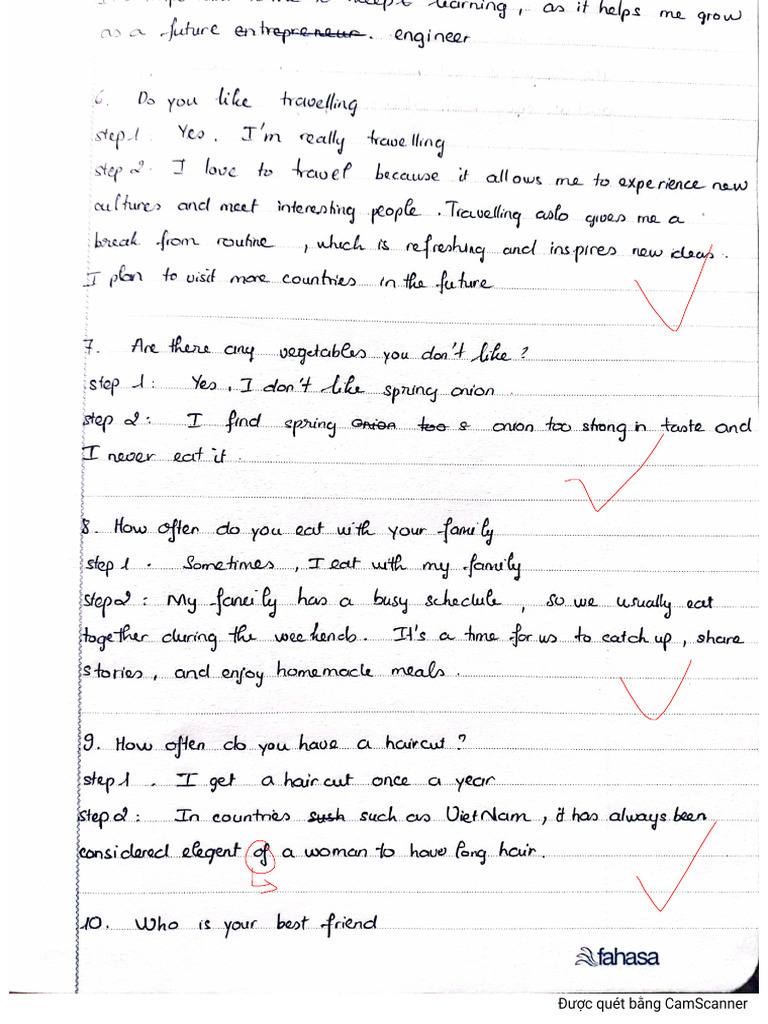 learning, as it helps me grow
as a future entrepreneur. engineer
6. Do you like travelling
step 1. Yes. I'm really travelling
step 2. I love to travel because it allows me to experience new
cultures and meet interesting people. Travelling aslo gives me a
break from routine, which is refreshing and inspires new ideas.
I plan to visit more countries in the future
7. Are there any vegetables you don't like?
step 1: Yes, I don't like spring onion.
step 2: I find spring onion too s onion too strong in taste and
I never eat it.
8. How often do you eat with your family
step 1. Sometimes, I eat with my family
step 2: My family has a busy schedule, so we usually eat
together during the weekends. It's a time for us to catch up, share
stories, and enjoy homemade meals.
9. How often do you have a haircut?
step 1. I get a haircut once a year
step 2: In countries sush such as VietNam, it has always been
considered elegent of a woman to have long hair.
10. Who is your best friend
fahasa
Được quét bằng CamScanner